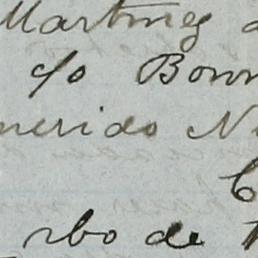 Martinez
c/o Bonn
querido N
C
rbo de